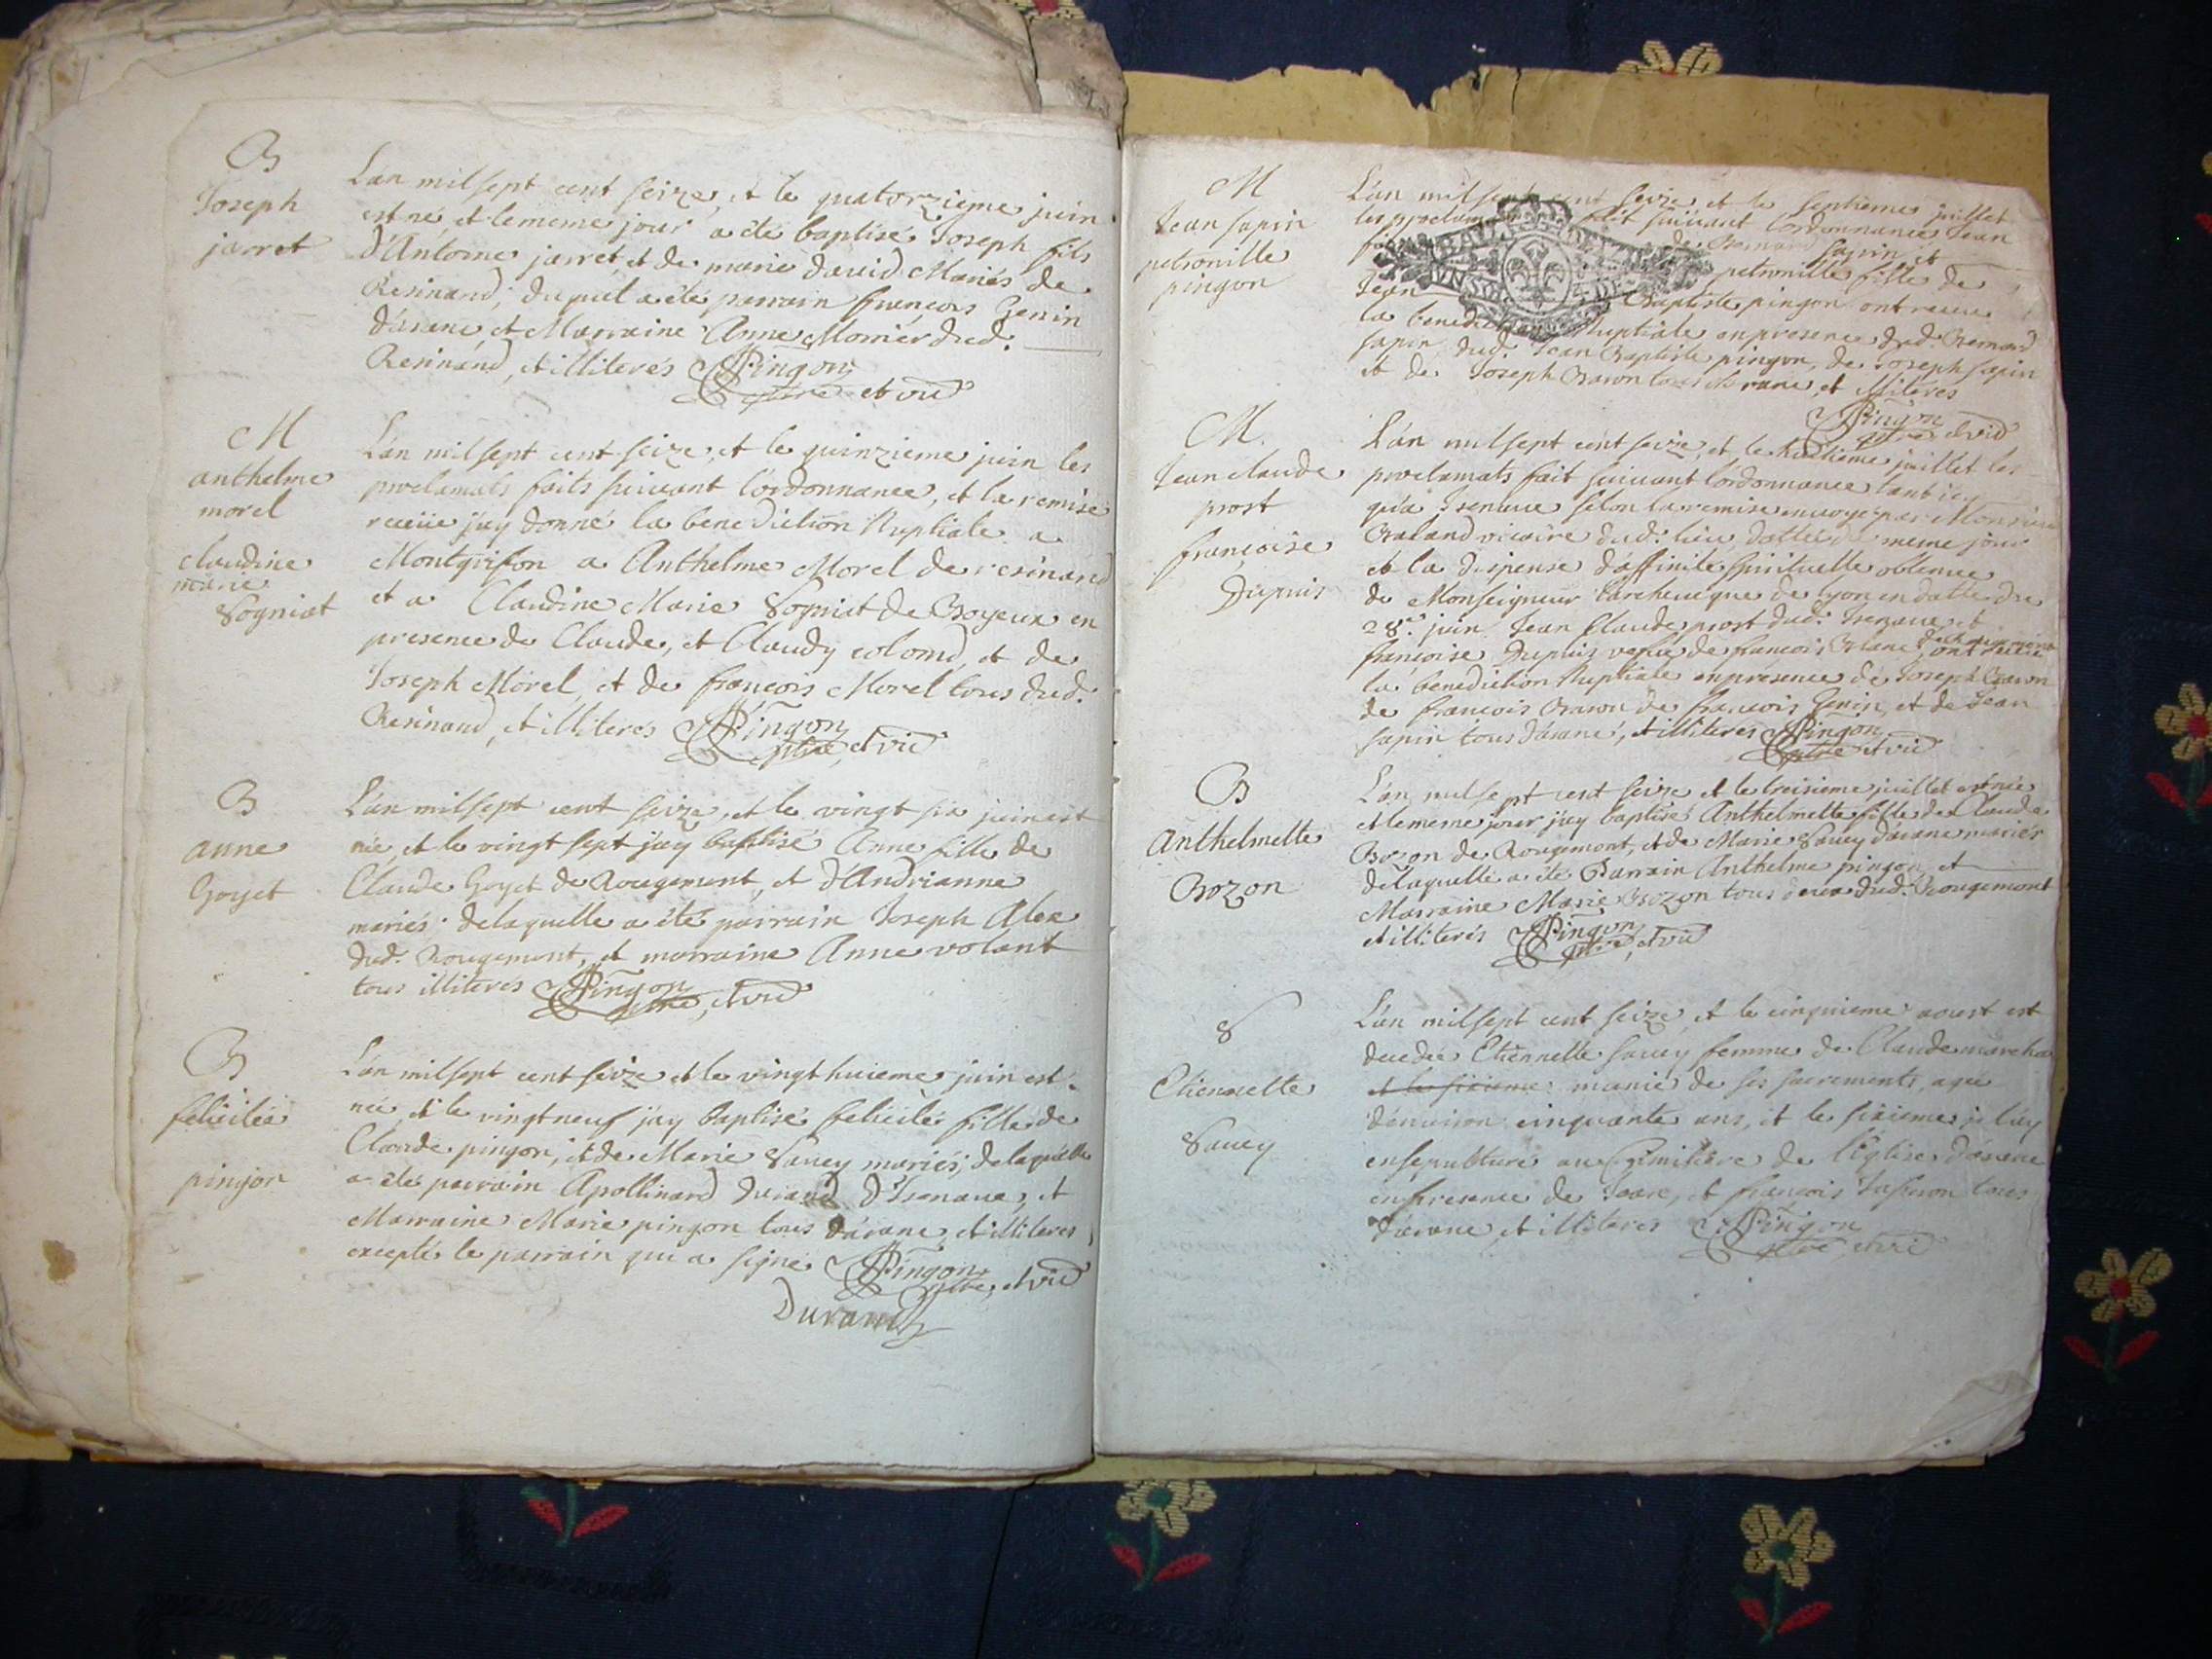 B
Joseph
jarret
L'an mil sept cent seize, et le quatorzieme juin
est né, et le meme jour a été baptisé Joseph fils
d'Antoine jarret, et de marie david Mariés de
Resinand; duquel a été parrain françois Genin
d'arane, et Marraine Anne Monier dud.
Resinand, et illiterés Pingon
ptre et vic
M
anthelme
morel
claudine
marie
Sogniat
L'an mil sept cent seize, et le quinzieme juin les
proclamats faits suivant l'ordonnance, et la remise
receüe j'ay donné la benediction Nuptiale a
Montgrifon a Anthelme Morel de resinand
et a Claudine Marie Sogniat de Boyeux en
presence de Claude, et Claudy colomd, et de
Joseph Morel, et de françois Morel tous dud.
Resinand, et illiterés Pingon
ptre, et vic
B
anne
Goyet
L'an mil sept cent seize, et le vingt six juin est
née, et le vingt sept j'ay baptisé Anne fille de
Claude Goyet de Rougemont, et d'Andrianne
mariés: de laquelle a été parrain Joseph Alex
dud. Rougemont, et marraine Anne volant
tous illiterés Pingon
ptre, et vic
B
felicitée
pinjon
L'an mil sept cent seize et le vingt huieme juin est
née, et le vingt neuf j'ay baptisé felicité fille de
Claude pingon, et de Marie Savey mariés; de laquelle
a été parrain Apollinard durand d'Isenave, et
Marraine Marie pingon tous d'arane, et illiteres,
excepté le parrain qui a signé Pingon
ptre, et vic
Durand
M
Jean sapin
petronille
pingon
L'an mil sept cent seize et le septieme juillet
les proclamats fait suivant l'ordonnance Jean
de Bernard sapin et
petronille fille de
Jean Baptiste pingon ont receu
la benediction Nuptiale en presence dud. Bernard
sapin dud. Jean Baptiste pingon, de Joseph sapin
et de Joseph Baron tous d'arane, et illiteres
Pingon
ptre et vic
M.
Jean claude
prost
françoise
Dupuis
L'an mil sept cent seize, et le huitieme juillet les
proclamats fait suivant l'ordonnance tant icy
qu'a Isenave selon la remise envoyé par Monsieur
Baland vicaire dud. lieu, dattée du meme jour
et la dispense d'affinité spirituelle obtenue
de Monseigneur l'archeveque de lyon en datte du
28e. juin Jean Claude prost dud. Isenave et
françoise Dupuis vefve de françois Blanc ont receu
la benediction Nuptiale en presence de Joseph Baron
de françois Baron de françois Genin, et de Jean
sapin tous d'arane, et illiterés Pingon
ptre et vic
B
Anthelmette
Bozon
L'an mil sept cent seize et le treisieme juillet est née
et le meme jour j'ay baptisé Anthelmette fille de Claude
Bozon de Rougemont, et de Marie Savey d'arane mariés
de laquelle a été Parrain Anthelme pingon, et
Marraine Marie Bozon tous deux dud. Rougemont
et illiterés Pingon
ptre, et vic
S
Etiennette
Savey
L'an mil sept cent seize, et le cinquieme aoust est
decedée Etiennette Savey femme de Claude marcha
et le sixieme munie de ses sacrements, agée
d'environ cinquante ans, et le sixieme je l'ay
ensepulturé au Cimitiere de l'église d'arane
en presence de Jean, et françois tous
d'arane, et illiteres Pingon
ptre et vic